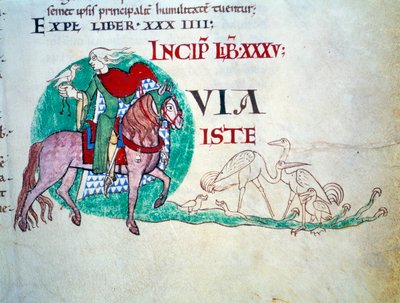 semet ipsis principalit̄ humilitatē tuentur;
EXPL̄ LIBER·XXX IIII;
INCIP̄ LIB̄·XXXV;
QVIA
ISTE